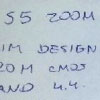 S5 ZOOM
IM DESIGN
20M CMOS
AND 4.4.